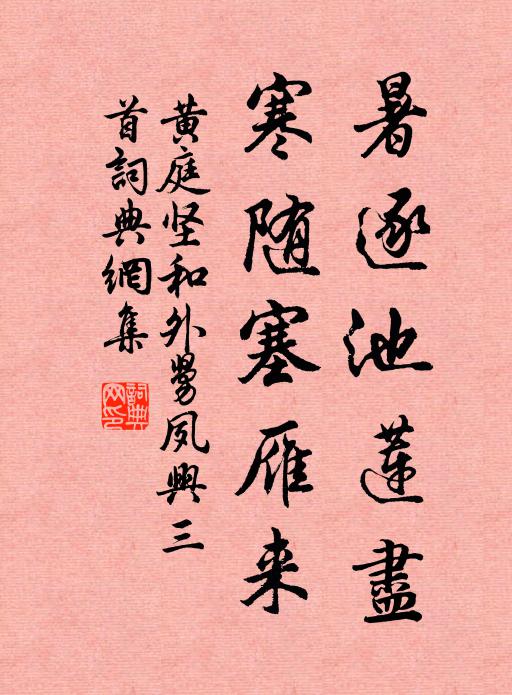 暑逐池蓮盡
寒随塞雁来
黄庭坚和外舅夙興三
首詞典網集
詞典網印